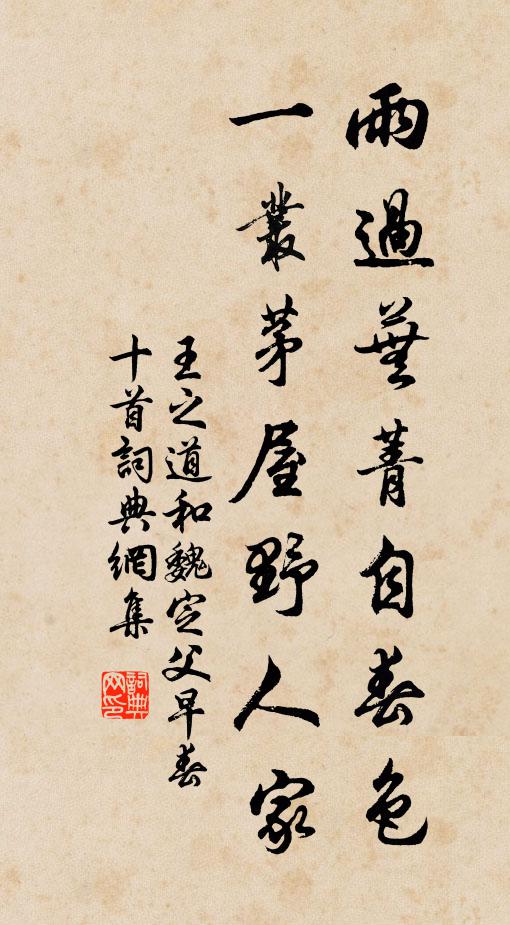 雨過蕪菁自春色
一叢茅屋野人家
王之道和魏定父早春
十首詞典網集
詞典網印